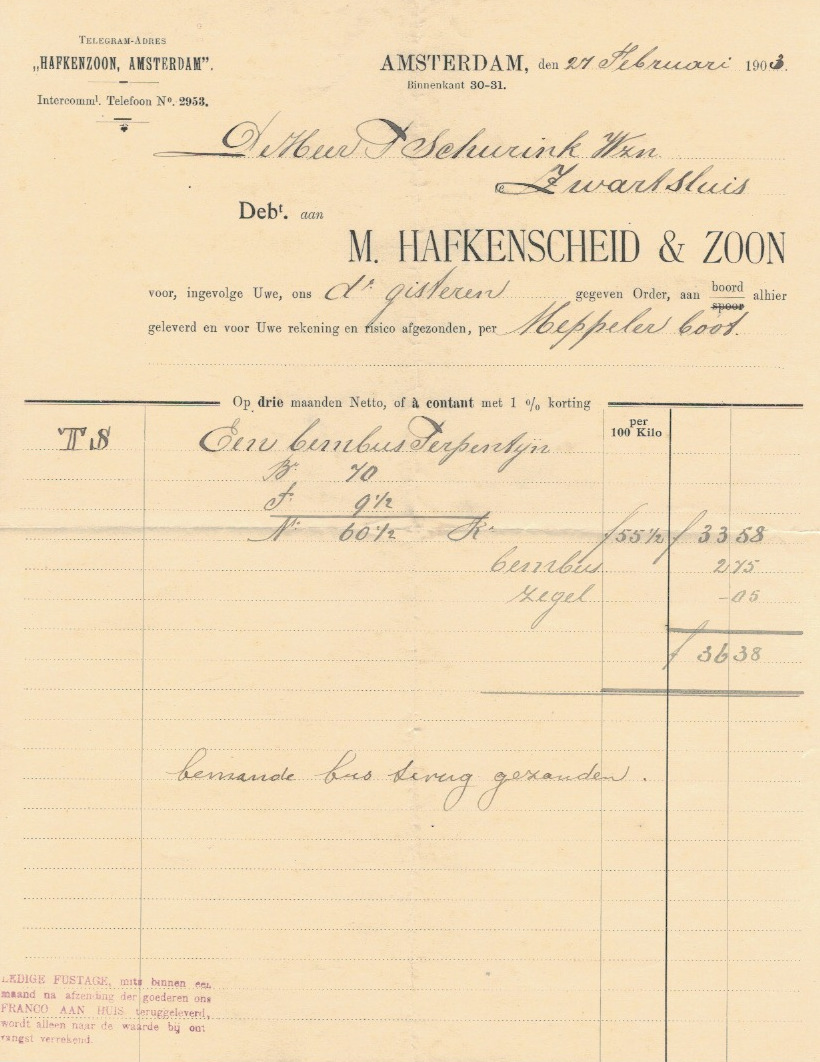 TELEGRAM-ADRES
„HAFKENZOON, AMSTERDAM”.
Intercomml. Telefoon No. 2953.
AMSTERDAM, den 27 Februari 1903.
Binnenkant 30-31.
De Heer T Schurink Wzn
Zwartsluis
Debt. aan
M. HAFKENSCHEID & ZOON
voor, ingevolge Uwe, ons dr. gisteren gegeven Order, aan boord spoor alhier
geleverd en voor Uwe rekening en risico afgezonden, per Meppeler boot.
Op drie maanden Netto, of à contant met 1 % korting
per
100 Kilo
TS Een bembus Terpentyn
Br. 70
T. 9 1/2
Nr. 60 1/2 Ko f 55 1/2 f 33 58
bembus 2 75
zegel - 05
f 36 38
bemande bus terug gezonden.
LEDIGE FUSTAGE, mits binnen een
maand na afzending der goederen ons
FRANCO AAN HUIS teruggeleverd,
wordt alleen naar de waarde bij ont
vangst verrekend.